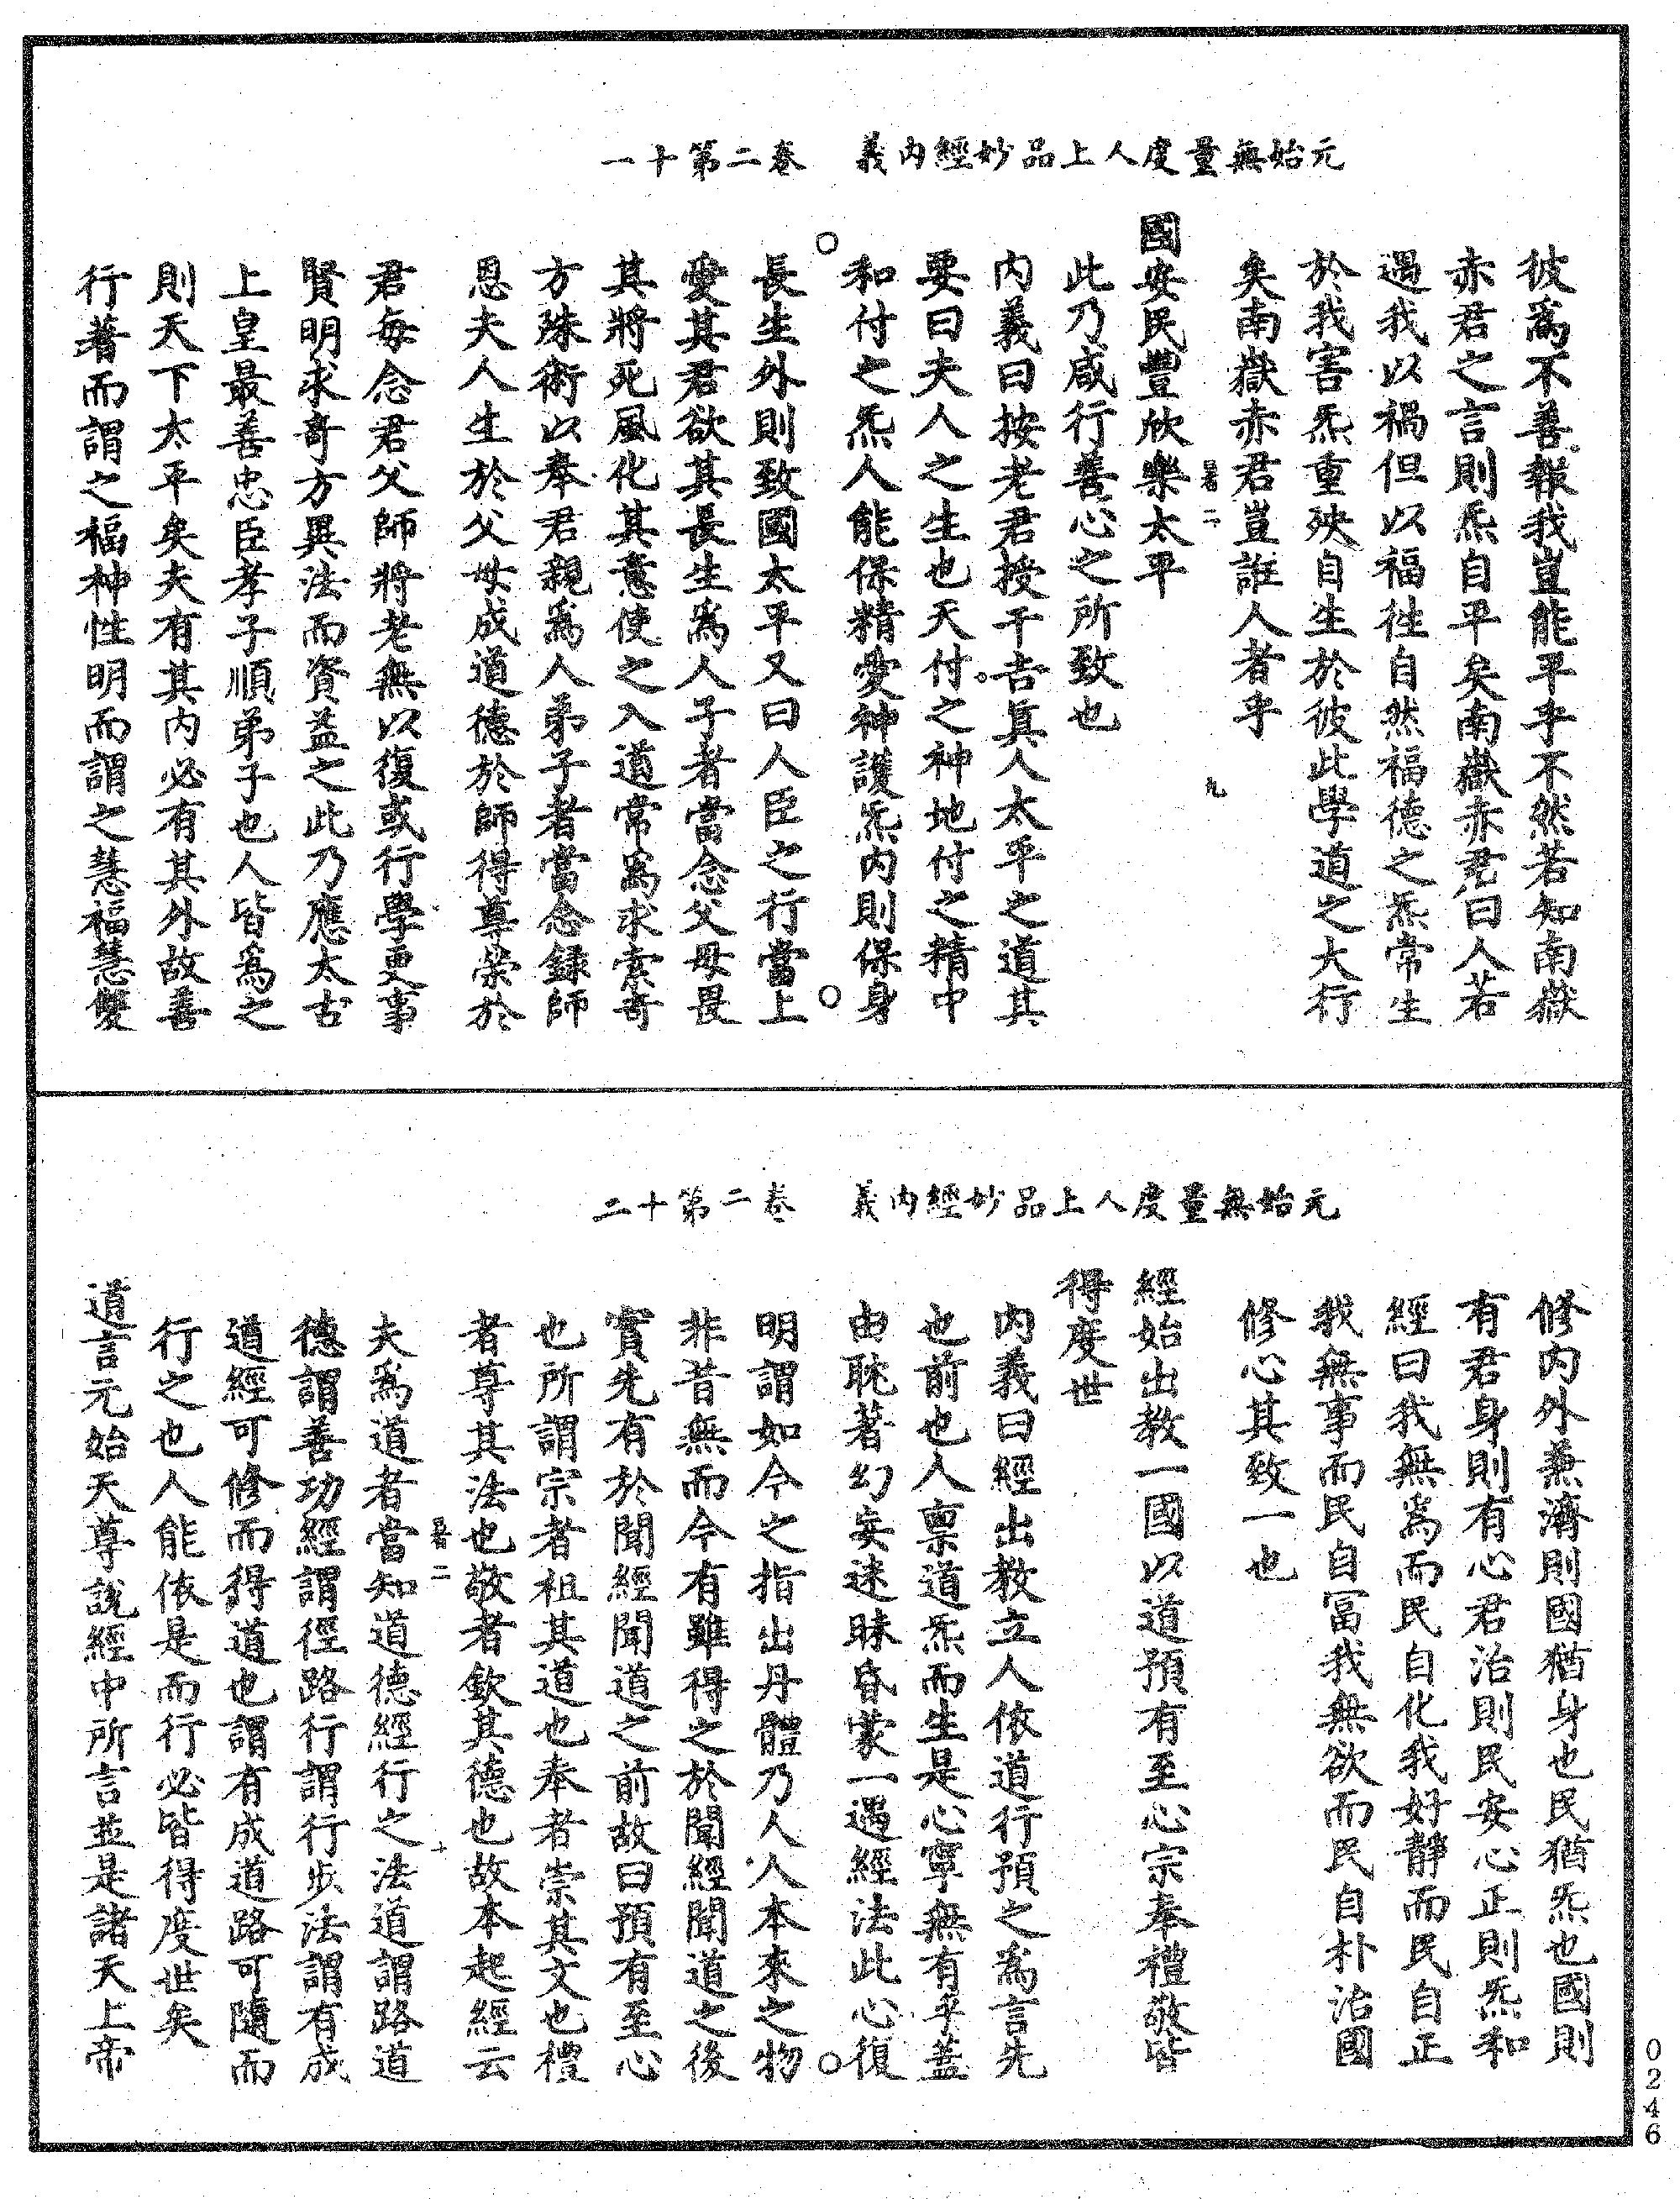 元始無量度人上品妙經內義　卷二第十一
彼爲不善報我豈能平乎不然若知南嶽
赤君之言則炁自平矣南嶽赤君曰人若
遇我以禍但以福往自然福德之炁常生
於我害炁重殃自生於彼此學道之大行
矣南嶽赤君豈誑人者乎
二
九
國安民豐欣樂太平
此乃咸行善心之所致也
內義曰按老君授干吉真人太平之道其
要曰夫人之生也天付之神地付之精中
和付之炁人能保精愛神護炁內則保身
長生外則致國太平又曰人臣之行當上
愛其君欲其長生爲人子者當念父母畏
其將死風化其意使之入道常爲求索奇
方殊術以奉君親爲人弟子者當念錄師
恩夫人生於父母成道德於師得尊榮於
君每念君父師將老無以復或行學更事
賢明求奇方異法而資益之此乃應太古
上皇最善忠臣孝子順弟子也人皆爲之
則天下太平矣夫有其內必有其外故善
行著而謂之福神性明而謂之慧福慧雙
元始無量度人上品妙經內義　卷二第十二
修內外兼濟則國猶身也民猶炁也國則
有君身則有心君治則民安心正則炁和
經曰我無爲而民自化我好靜而民自正
我無事而民自富我無欲而民自朴治國
修心其致一也
經始出教一國以道預有至心宗奉禮敬皆
得度世
內義曰經出教立人依道行預之爲言先
也前也人稟道炁而生是心寧無有乎蓋
由耽著幻妄迷昧昏蒙一遇經法此心復
明謂如今之指出丹體乃人人本來之物
非昔無而今有雖得之於聞經聞道之後
實先有於聞經聞道之前故曰預有至心
也所謂宗者祖其道也奉者崇其文也禮
者尊其法也敬者欽其德也故本起經云
二
十
夫爲道者當知道德經行之法道謂路道
德謂善功經謂徑路行謂行步法謂有成
道經可修而得道也謂有成道路可隨而
行之也人能依是而行必皆得度世矣
道言元始天尊說經中所言並是諸天上帝
0246